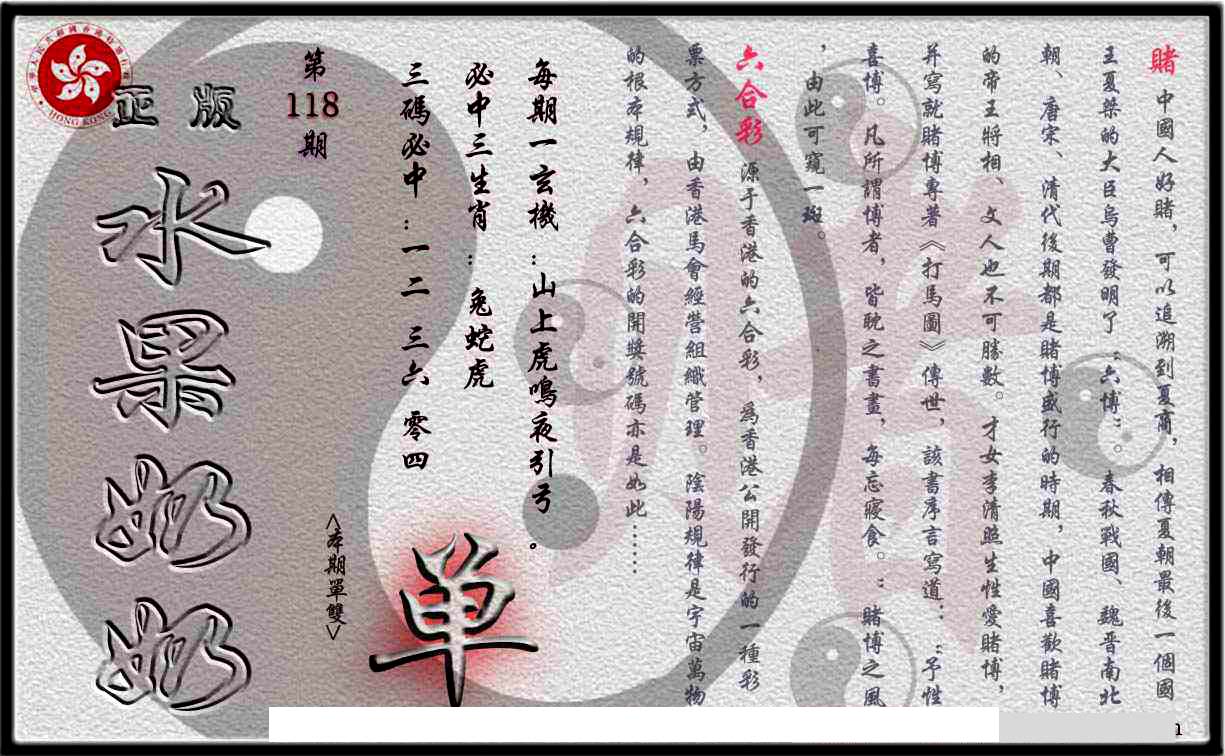 賭 中國人好賭，可以追溯到夏商，相傳夏朝最後一個國
王夏桀的大臣烏曹發明了“六博” 春秋戰國、魏晉南北
朝、唐宋、清代後期都是賭博盛行的時期，中國喜歡賭博
的帝王將相、文人也不可勝數。才女李清照生性愛賭博，
并寫就賭博專著《打馬圖》傳世，該書序言寫道：“予性
喜博。凡所謂博者，皆耽之書畫，每忘寢食。”賭博之風
，由此可窺一斑。
六合彩 源于香港的六合彩，為香港公開發行的一種彩
票方式，由香港馬會經營組織管理。陰陽規律是宇宙萬物
的根本規律，六合彩的開獎號碼亦是如此……
每期一玄機：山上虎鳴夜引弓。
必中三生肖：兔蛇虎
三碼必中：一二 三六 零四
单
<本期單雙>
第118期
正版
水果奶奶
HONG KONG